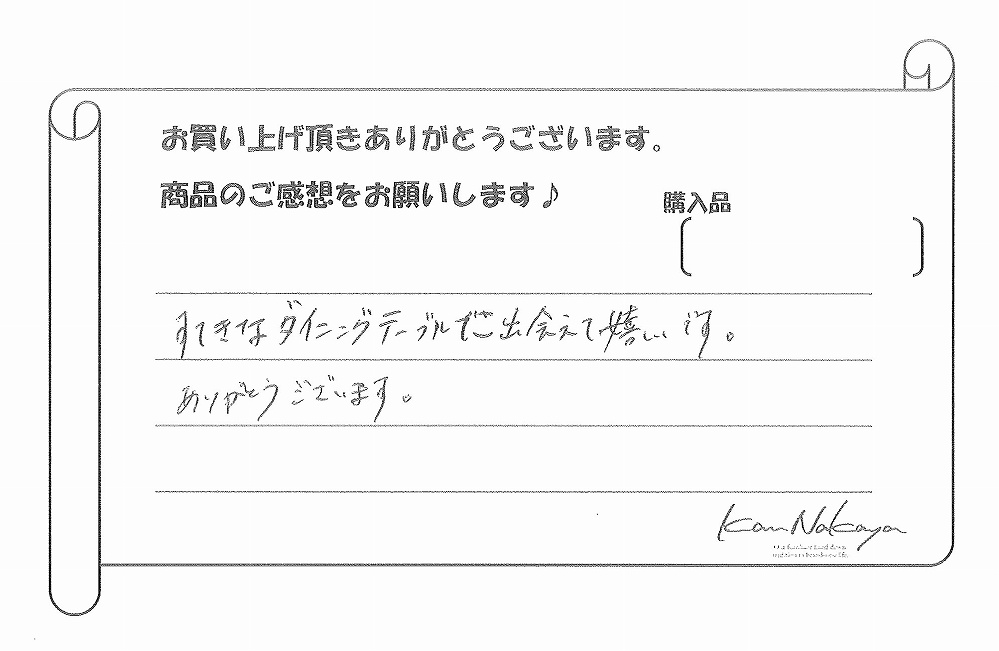 お買い上げ頂きありがとうございます。
商品のご感想をお願いします♪
購入品
すてきなダイニングテーブルに出会えて嬉しいです。
ありがとうございます。
Kan Nakaya